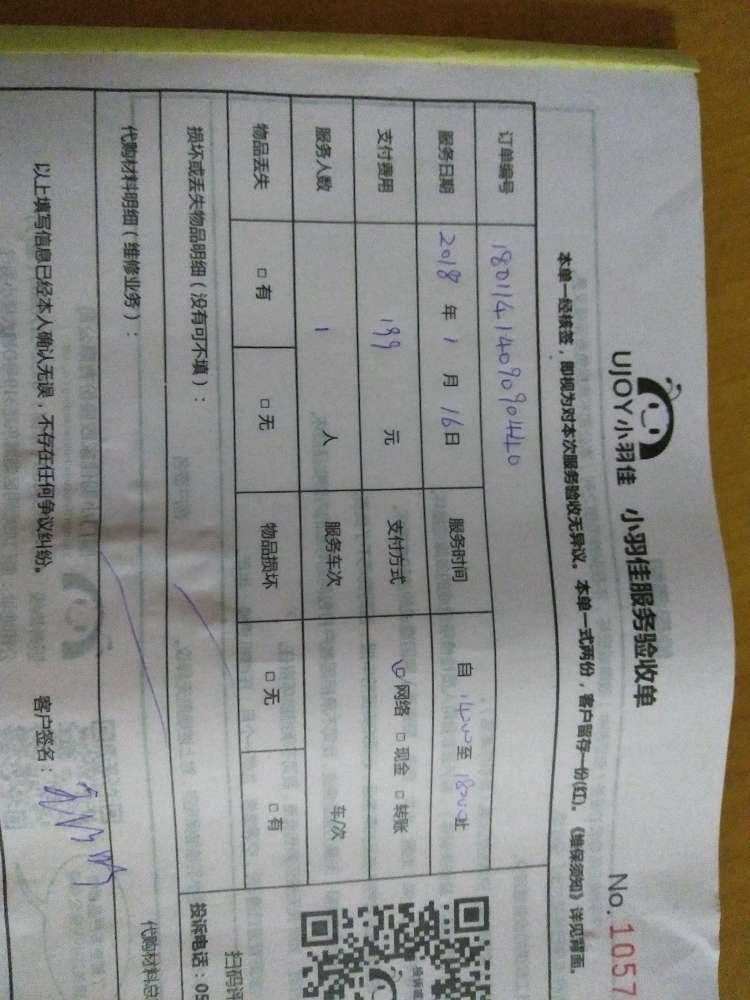 UJOY小羽佳 小羽佳服务验收单 No. 1057
本单一经核签，即视为对本次服务验收无异议。本单一式两份，客户留存一份(红)。《维保须知》详见背面。
订单编号 18011414090904440
服务日期 2018 年 1 月 16 日 服务时间 自 14:00 至 18:00 止
支付费用 199 元 支付方式 网络 □现金 □转账
服务人数 1 人 服务车次 车/次
物品丢失 □有 □无 物品损坏 □无 □有
损坏或丢失物品明细（没有可不填）：
扫码评
投诉电话：05
代购材料明细（维修业务）：
代购材料总
以上填写信息已经本人确认无误，不存在任何争议纠纷。 客户签名：